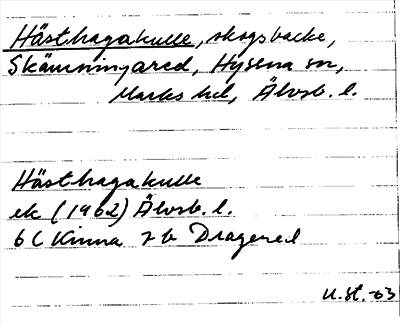 Hästhagakulle, skogsbacke,
Skämningared, Hyssna sn,
Marks hd, Älvsb. l.
Hästhagakulle
ek (1962) Älvsb. l.
6 C Kinna 7 b Dragered
U. St. -63